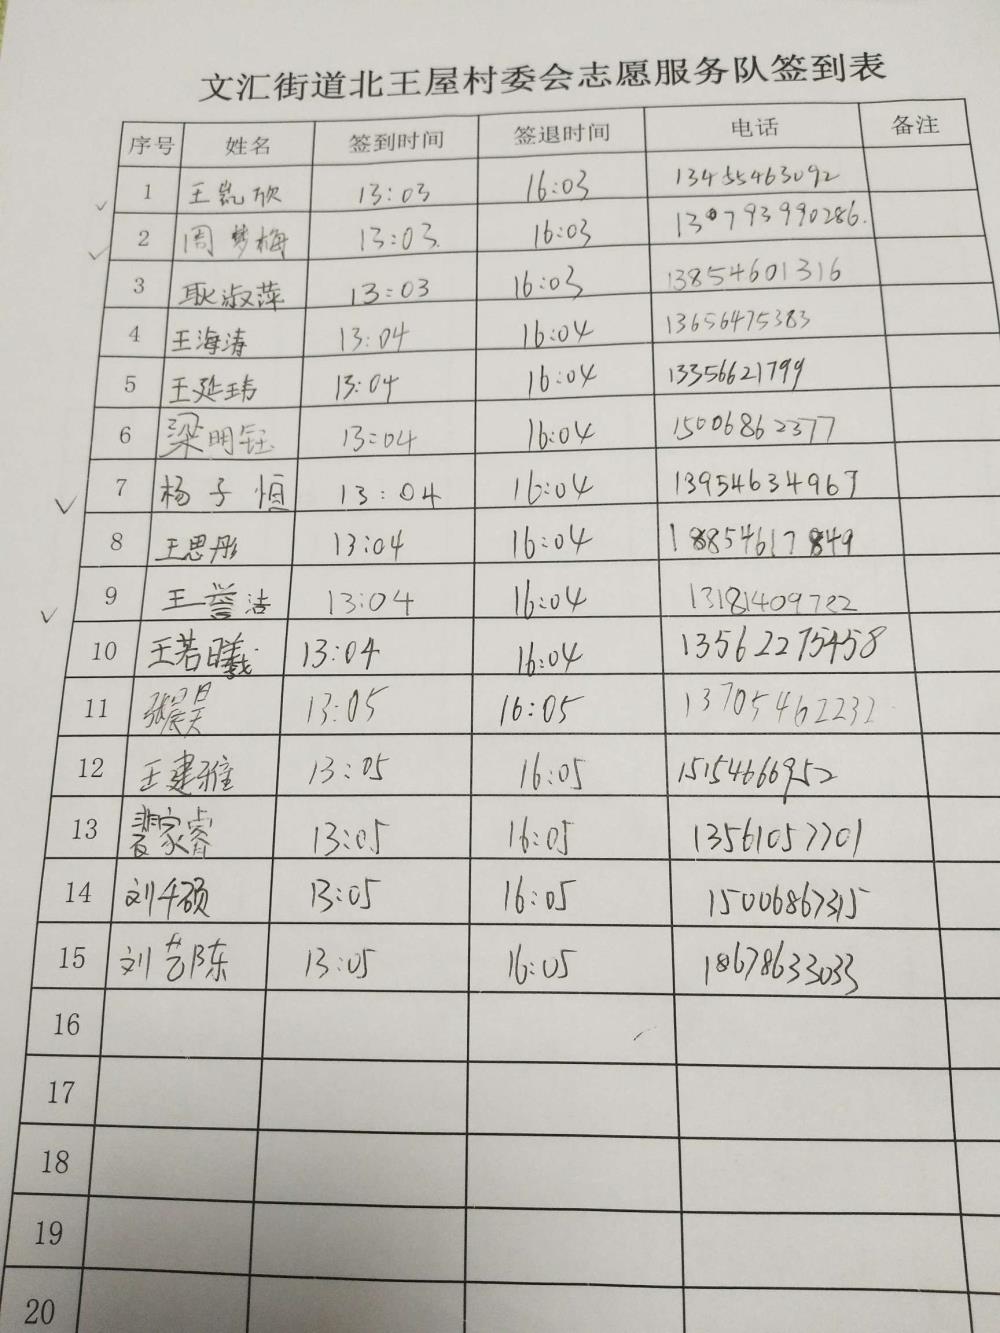 文汇街道北王屋村委会志愿服务队签到表
序号 姓名 签到时间 签退时间 电话 备注
1 王凯欣 13:03 16:03 13455463092
2 周梦梅 13:03 16:03 13079390286.
3 耿淑萍 13:03 16:03 13854601316
4 王海涛 13:04 16:04 13656475383
5 王延玮 13:04 16:04 13356621799
6 梁明钰 13:04 16:04 15006862377
7 杨子恒 13:04 16:04 13954634967
8 王思彤 13:04 16:04 18854617849
9 王誉洁 13:04 16:04 13181409722
10 王若曦 13:04 16:04 13562275458
11 张晨昊 13:05 16:05 13705462232
12 王建雅 13:05 16:05 15154666952
13 裴家睿 13:05 16:05 13561057701
14 刘千硕 13:05 16:05 15006867315
15 刘艺陈 13:05 16:05 18678633033
16
17
18
19
20